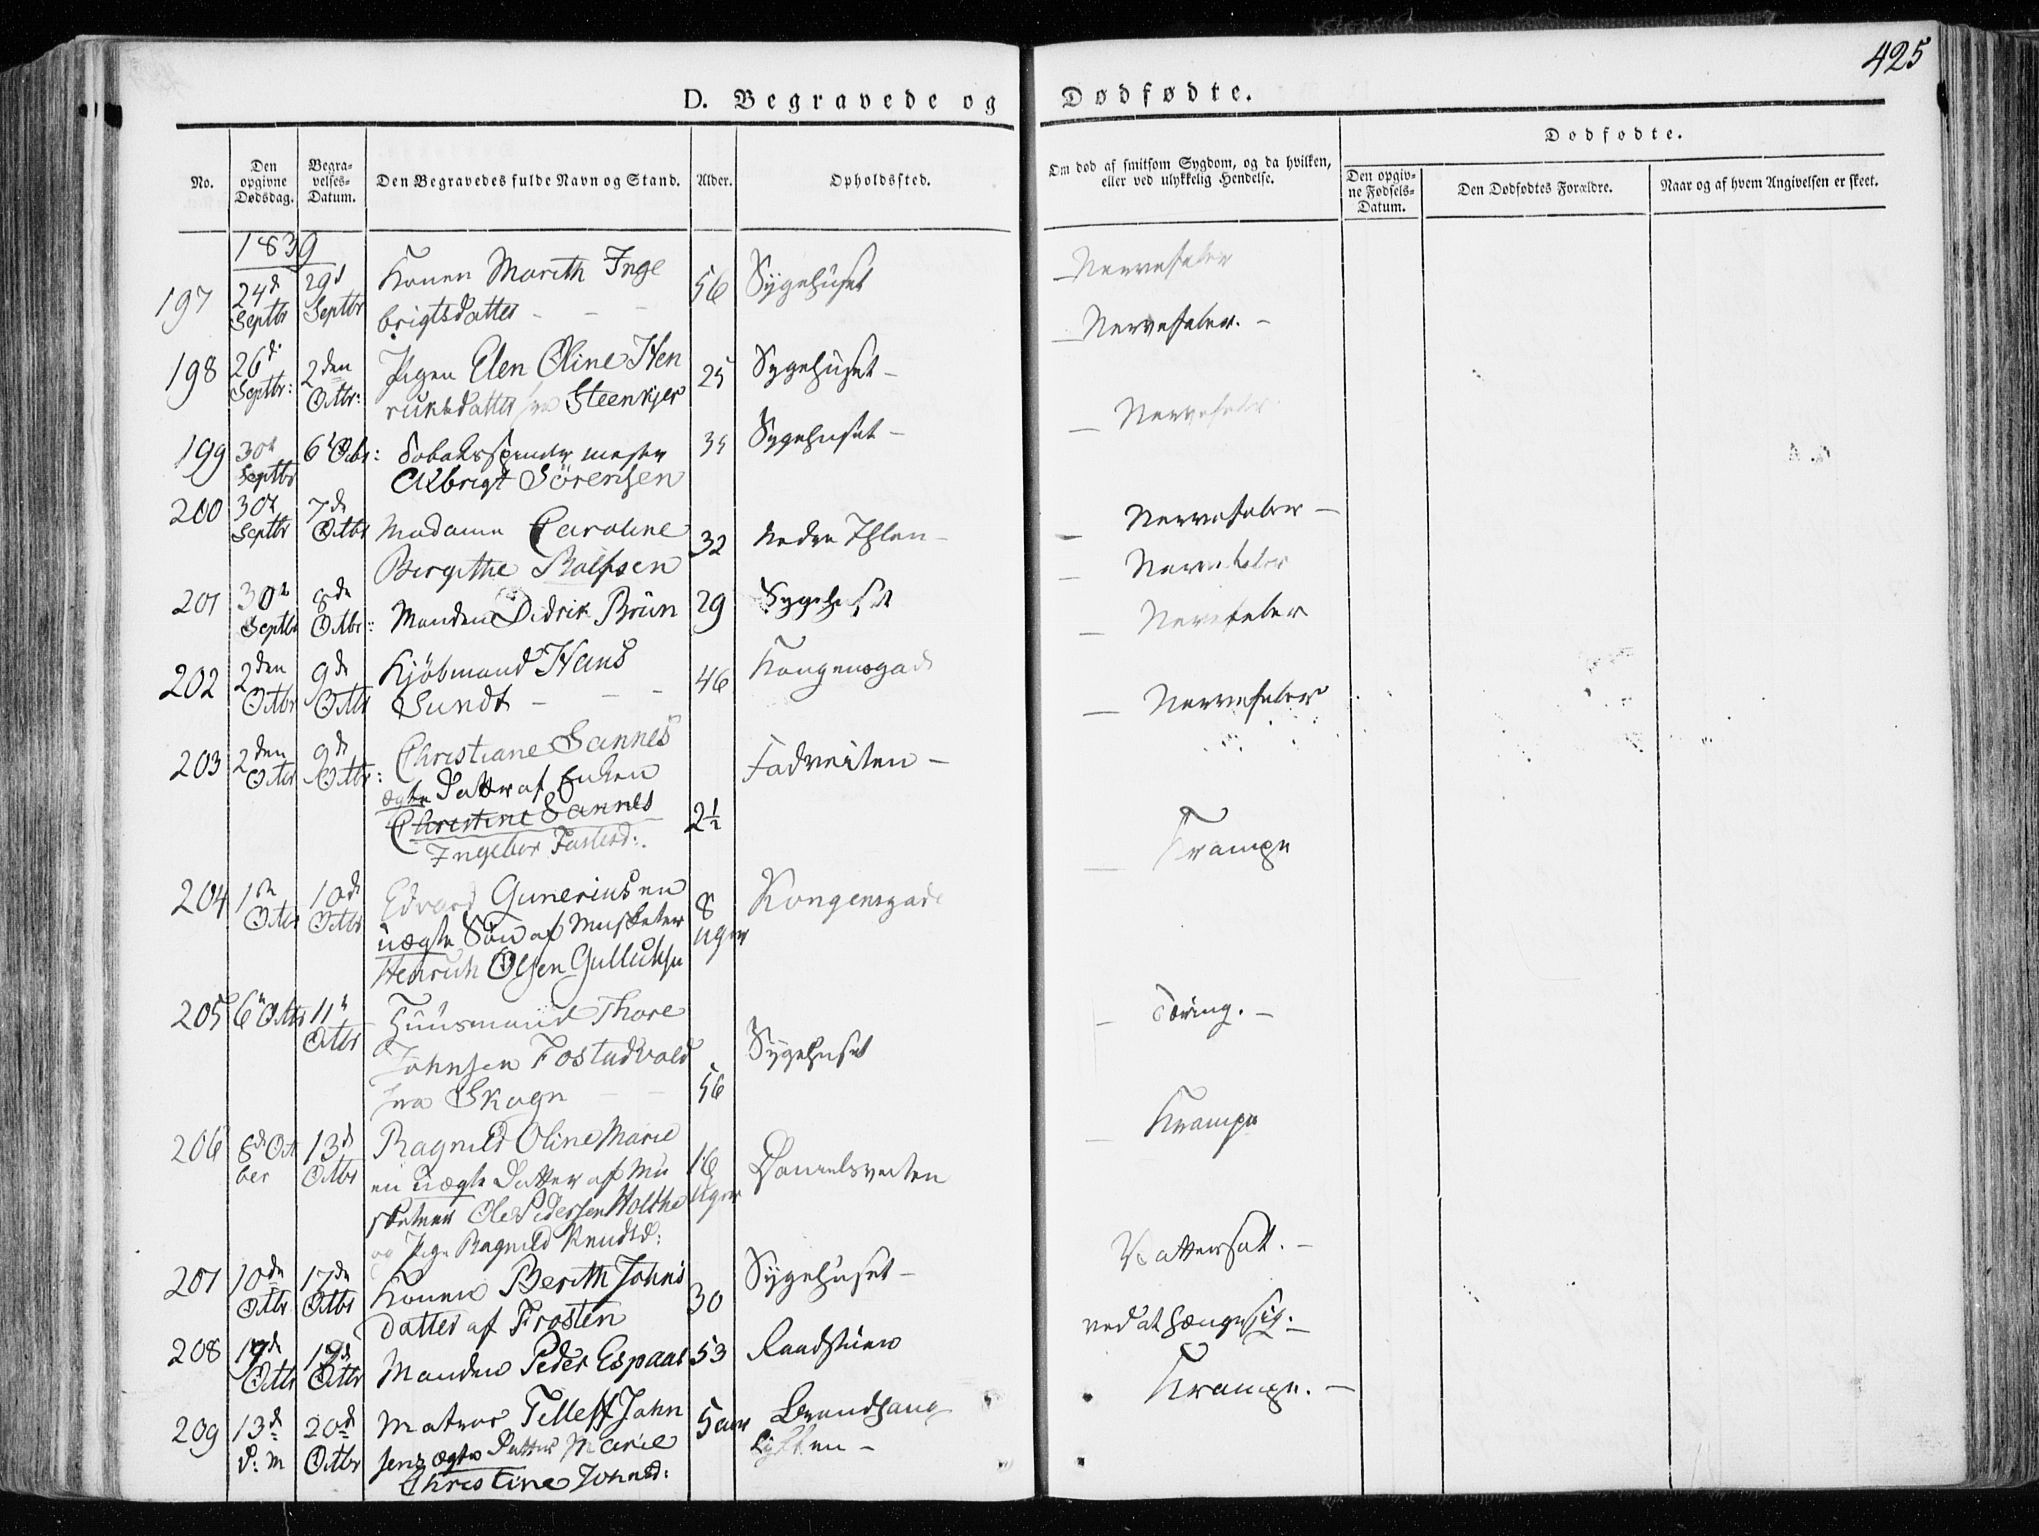 425
D. Begravede og Dødfødte.
No.
Den opgivne Dødsdag.
Begravelses-Datum.
Den Begravedes fulde Navn og Stand.
Alder.
Opholdssted.
Om død af smitsom Sygdom, og da hvilken,
eller ved ulykkelig Hendelse.
Dødfødte.
Den opgivne Fødsels-Datum.
Den Dødfødtes Forældre.
Naar og af hvem Angivelsen er skeet.
1839
197 24d Septbr 29d Septbr Konen Marith Inge 56 Sygehuset Nervefeber
brigtsdatter - - -
198 26d Septbr: 2den Octbr: Pigen Elen Oline Hen 25 Sygehuset - Nervefeber. -
riksdatter fra Steenkjer
199 30te Septbr 6t Octbr: Tobaksspinder mester 35 Sygehuset - Nervefeber
Albrigt Sörensen
200 30te Septbr 7de Octbr Madame Caroline 32 Nedre Ihlen - Nervefeber -
Birgithe Rolfsen
201 30te Septbr 8de Octbr: Manden Didrik Brün 29 Sygehuset Nervefeber
202 2den Octbr 9de Octbr Kjöbmand Hans 46 Kongensgade Nervefeber
Sundt - - -
203 2den Octbr 9de Octbr: Christiane Sannes Fadveiten - Nervefeber
ægte Datter af Enken
Christine Sannes 2½
Ingebor Fastesd:. Krampe
204 1te Octbr 10de Octbr Edvard Gunerius en 8 Uger Kongensgade
uægte Sön af Musketer
Henrich Olsen Gullichsen
205 6te Octbr 11te Octbr Huusmand Thore Tæring. -
Johnsen Fostadvald 56 Sygehuset
fra Skogn - -
206 8de Octber 13de Octbr Ragnild Oline Marie 16 Uger Danielsveiten Krampe
en uægte Datter af Mu
sketeer Ole Pedersen Holthe
og Pige Ragnild Knudsd:
207 10de Octbr 17de Octbr Konen Berith Johns 30 Sygehuset - Vattersot. -
datter af Frosten
208 17de Octbr 19de Octbr Manden Peder Espaas 53 Raadstuen ved at hænge sig. -
209 13de d: M 20de Octbr Matros Tellef John 5 aar Brandhaug Krampe. -
sens ægte Datter Marie Lykken -
Christine Johnsd: